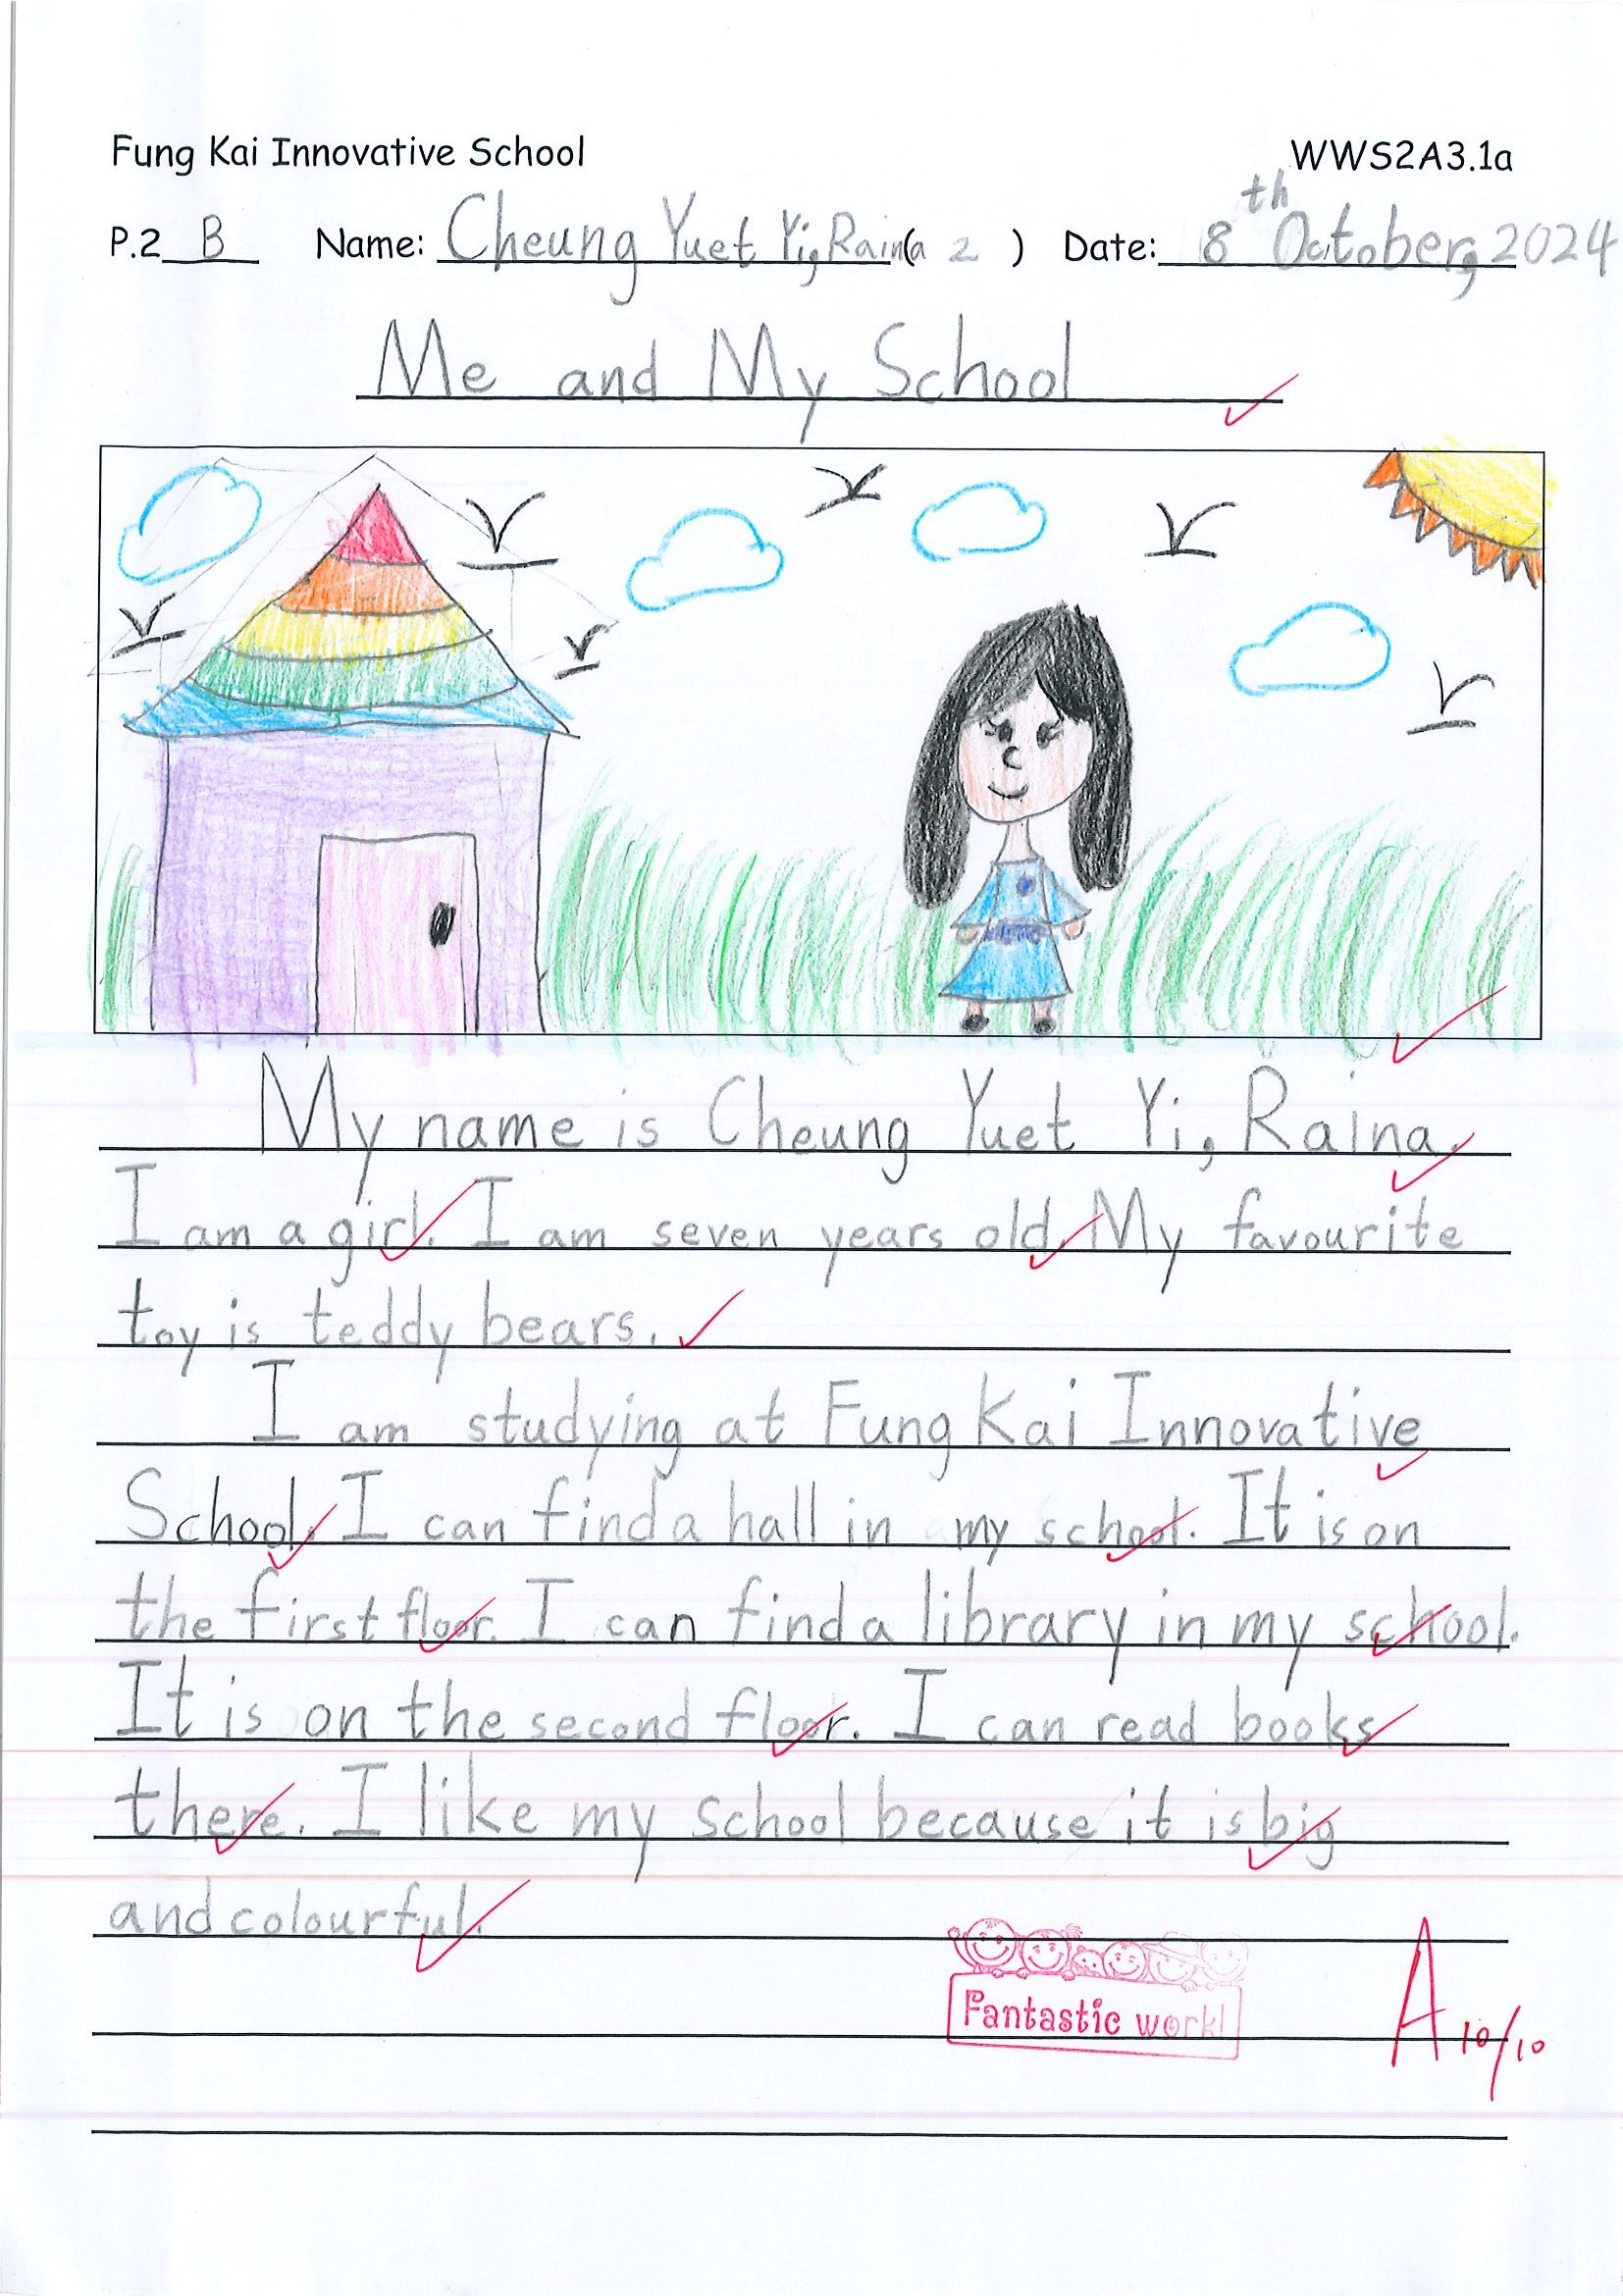 Fung Kai Innovative School WWS2A3.1a
P.2 B Name: Cheung Yuet Yi, Raina ( 2 ) Date: 8th October, 2024
Me and My School
My name is Cheung Yuet Yi, Raina.
I am a girl. I am seven years old. My favourite
toy is teddy bears.
I am studying at Fung Kai Innovative
School. I can find a hall in my school. It is on
the first floor. I can find a library in my school.
It is on the second floor. I can read books
there. I like my school because it is big
and colourful.
Fantastic work!
A 10/10